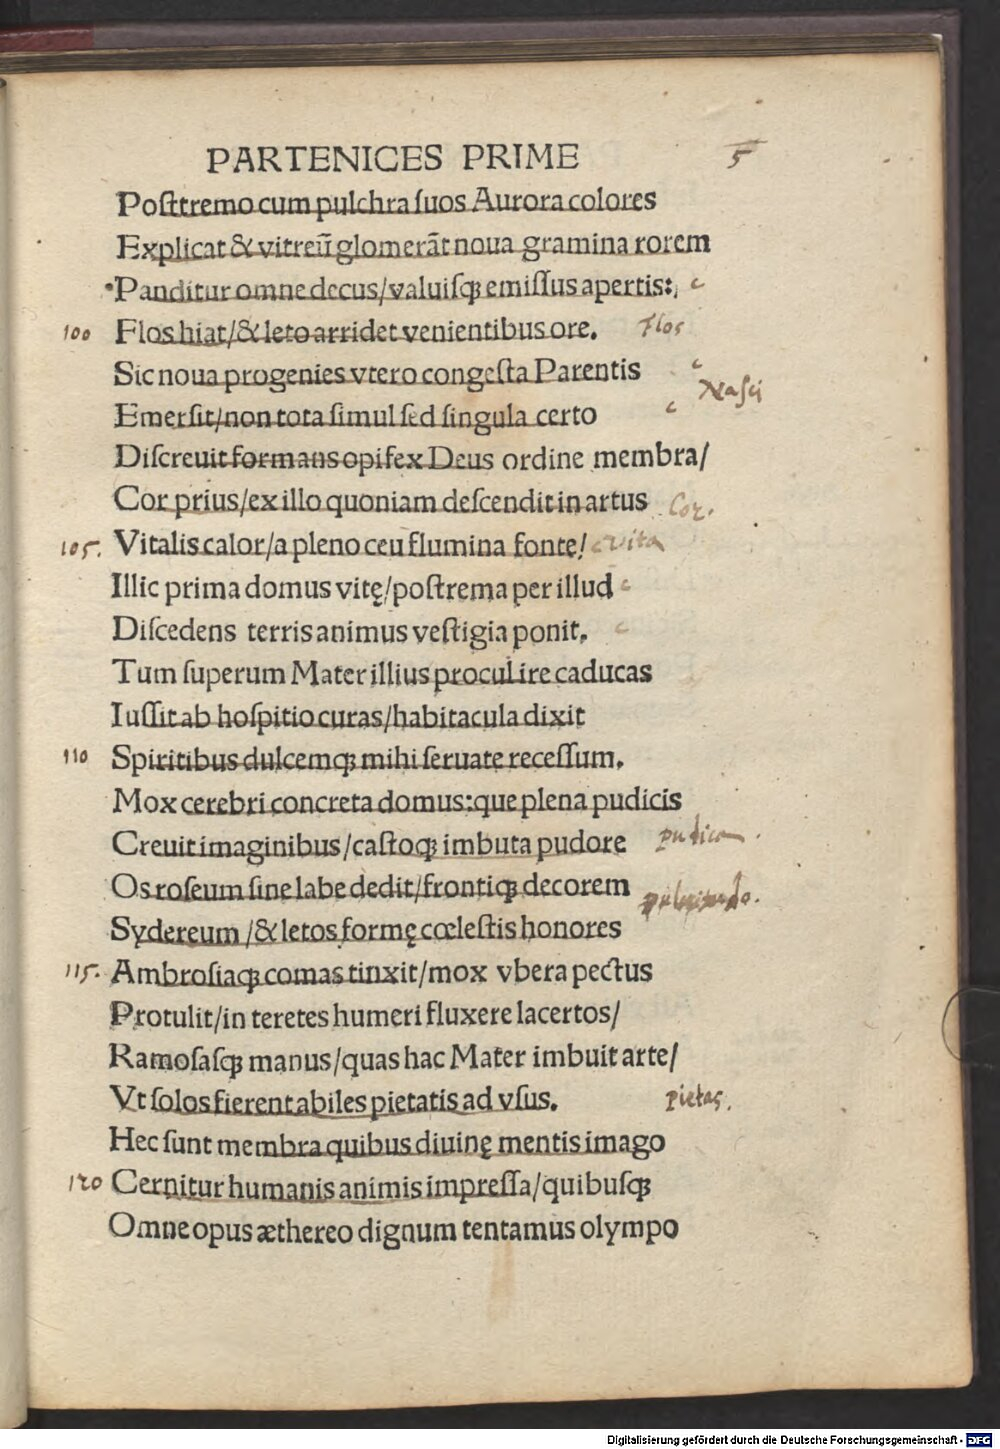 PARTENICES PRIME 5
Posttremo cum pulchra suos Aurora colores
Explicat & vitreū glomerāt noua gramina rorem
Panditur omne decus/valuisqꝫ emissus apertis:
100 Flos hiat/& leto arridet venientibus ore. Flos
Sic noua progenies vtero congesta Parentis
Nasci
Emersit/non tota simul sed singula certo
Discreuit formans opifex Deus ordine membra/
Cor prius/ex illo quoniam descendit in artus Cor.
105. Vitalis calor/a pleno ceu flumina fonte/ vita
Illic prima domus vitę/postrema per illud
Discedens terris animus vestigia ponit.
Tum superum Mater illius procul ire caducas
Iussit ab hospitio curas/habitacula dixit
110 Spiritibus dulcemqꝫ mihi seruate recessum.
Mox cerebri concreta domus:que plena pudicis
Creuit imaginibus/castoqꝫ imbuta pudore
Os roseum sine labe dedit/frontiqꝫ decorem
Sydereum/& letos formę cœlestis honores
115. Ambrosiaqꝫ comas tinxit/mox vbera pectus
Protulit/in teretes humeri fluxere lacertos/
Ramosasqꝫ manus/quas hac Mater imbuit arte/
Vt solos fierent abiles pietatis ad vsus. pietas.
Hec sunt membra quibus diuinę mentis imago
120 Cernitur humanis animis impressa/quibusqꝫ
Omne opus æthereo dignum tentamus olympo
Digitalisierung gefördert durch die Deutsche Forschungsgemeinschaft - DFG